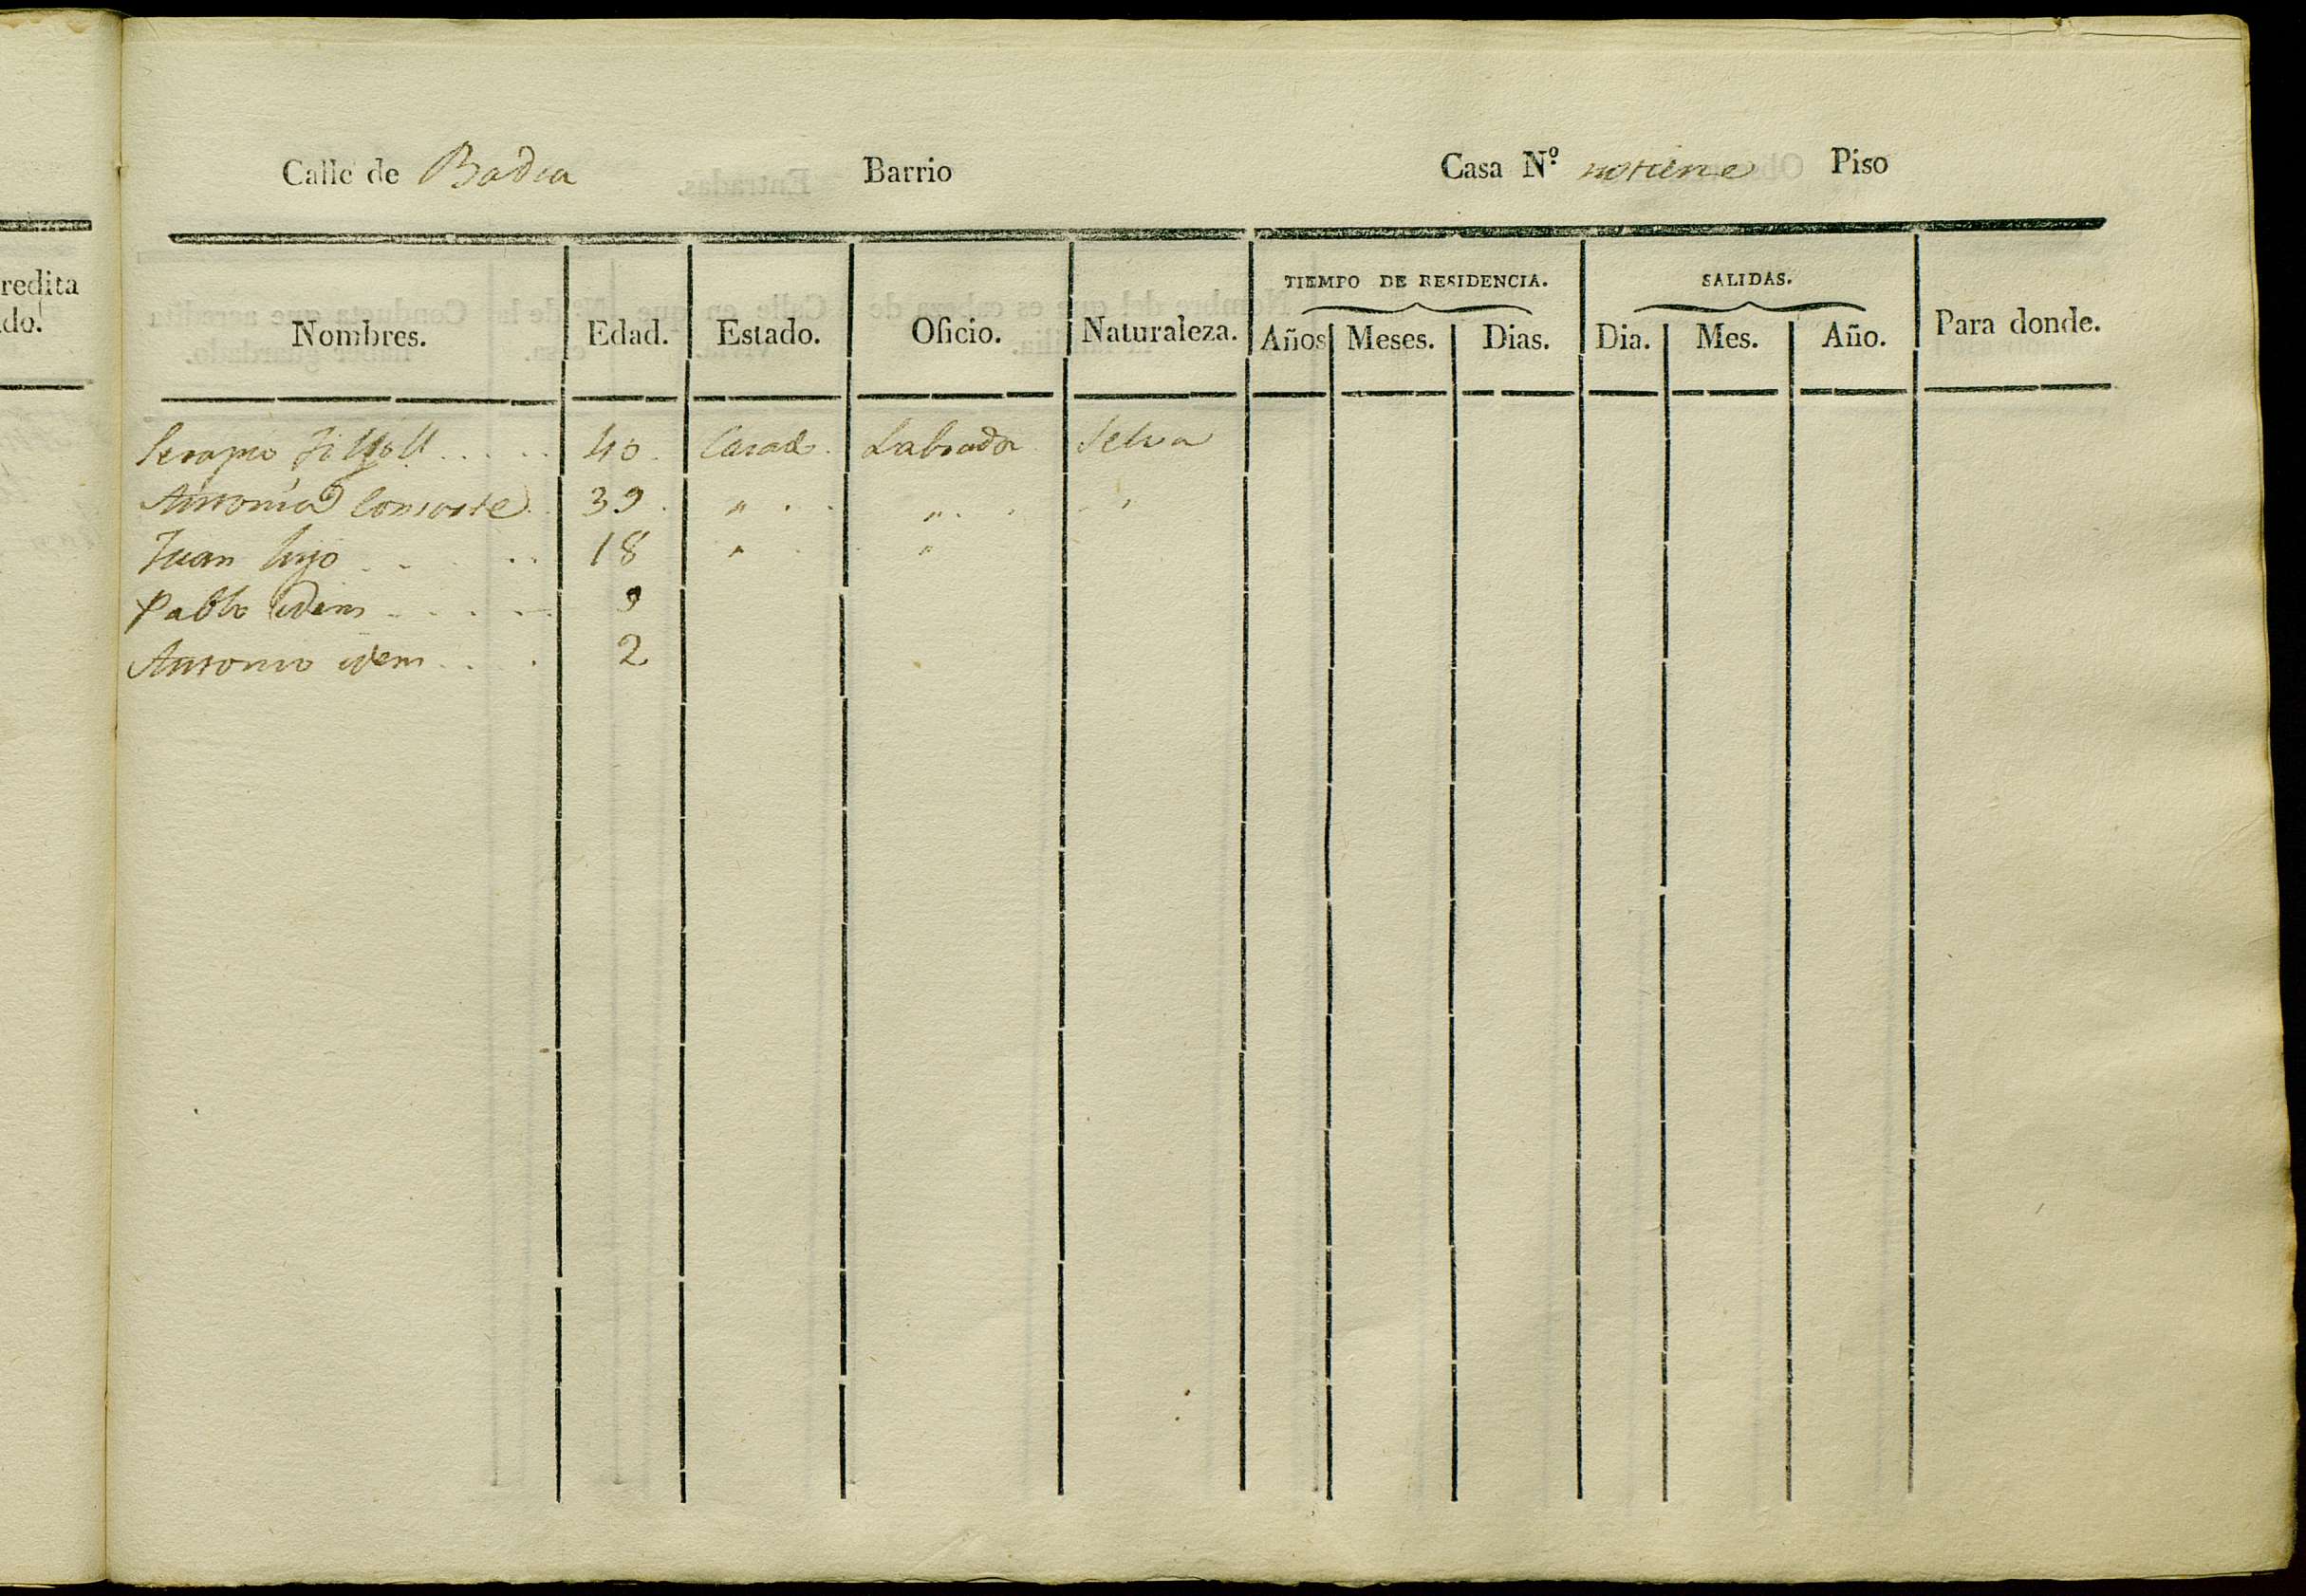 redita
do.
Calle de Badia Barrio Casa Nº. notiene Piso
TIEMPO DE RESIDENCIA. SALIDAS.
Nombres. Edad. Estado. Oficio. Naturaleza. Años Meses. Dias. Dia. Mes. Año. Para donde.
40. Casado. Labrador Selva
Antonia Consorte. 39. " . . " . . "
Juan hijo . . . . . 18 " . "
Pablo idem . . . . . 9
Antonio idem . . . . 2